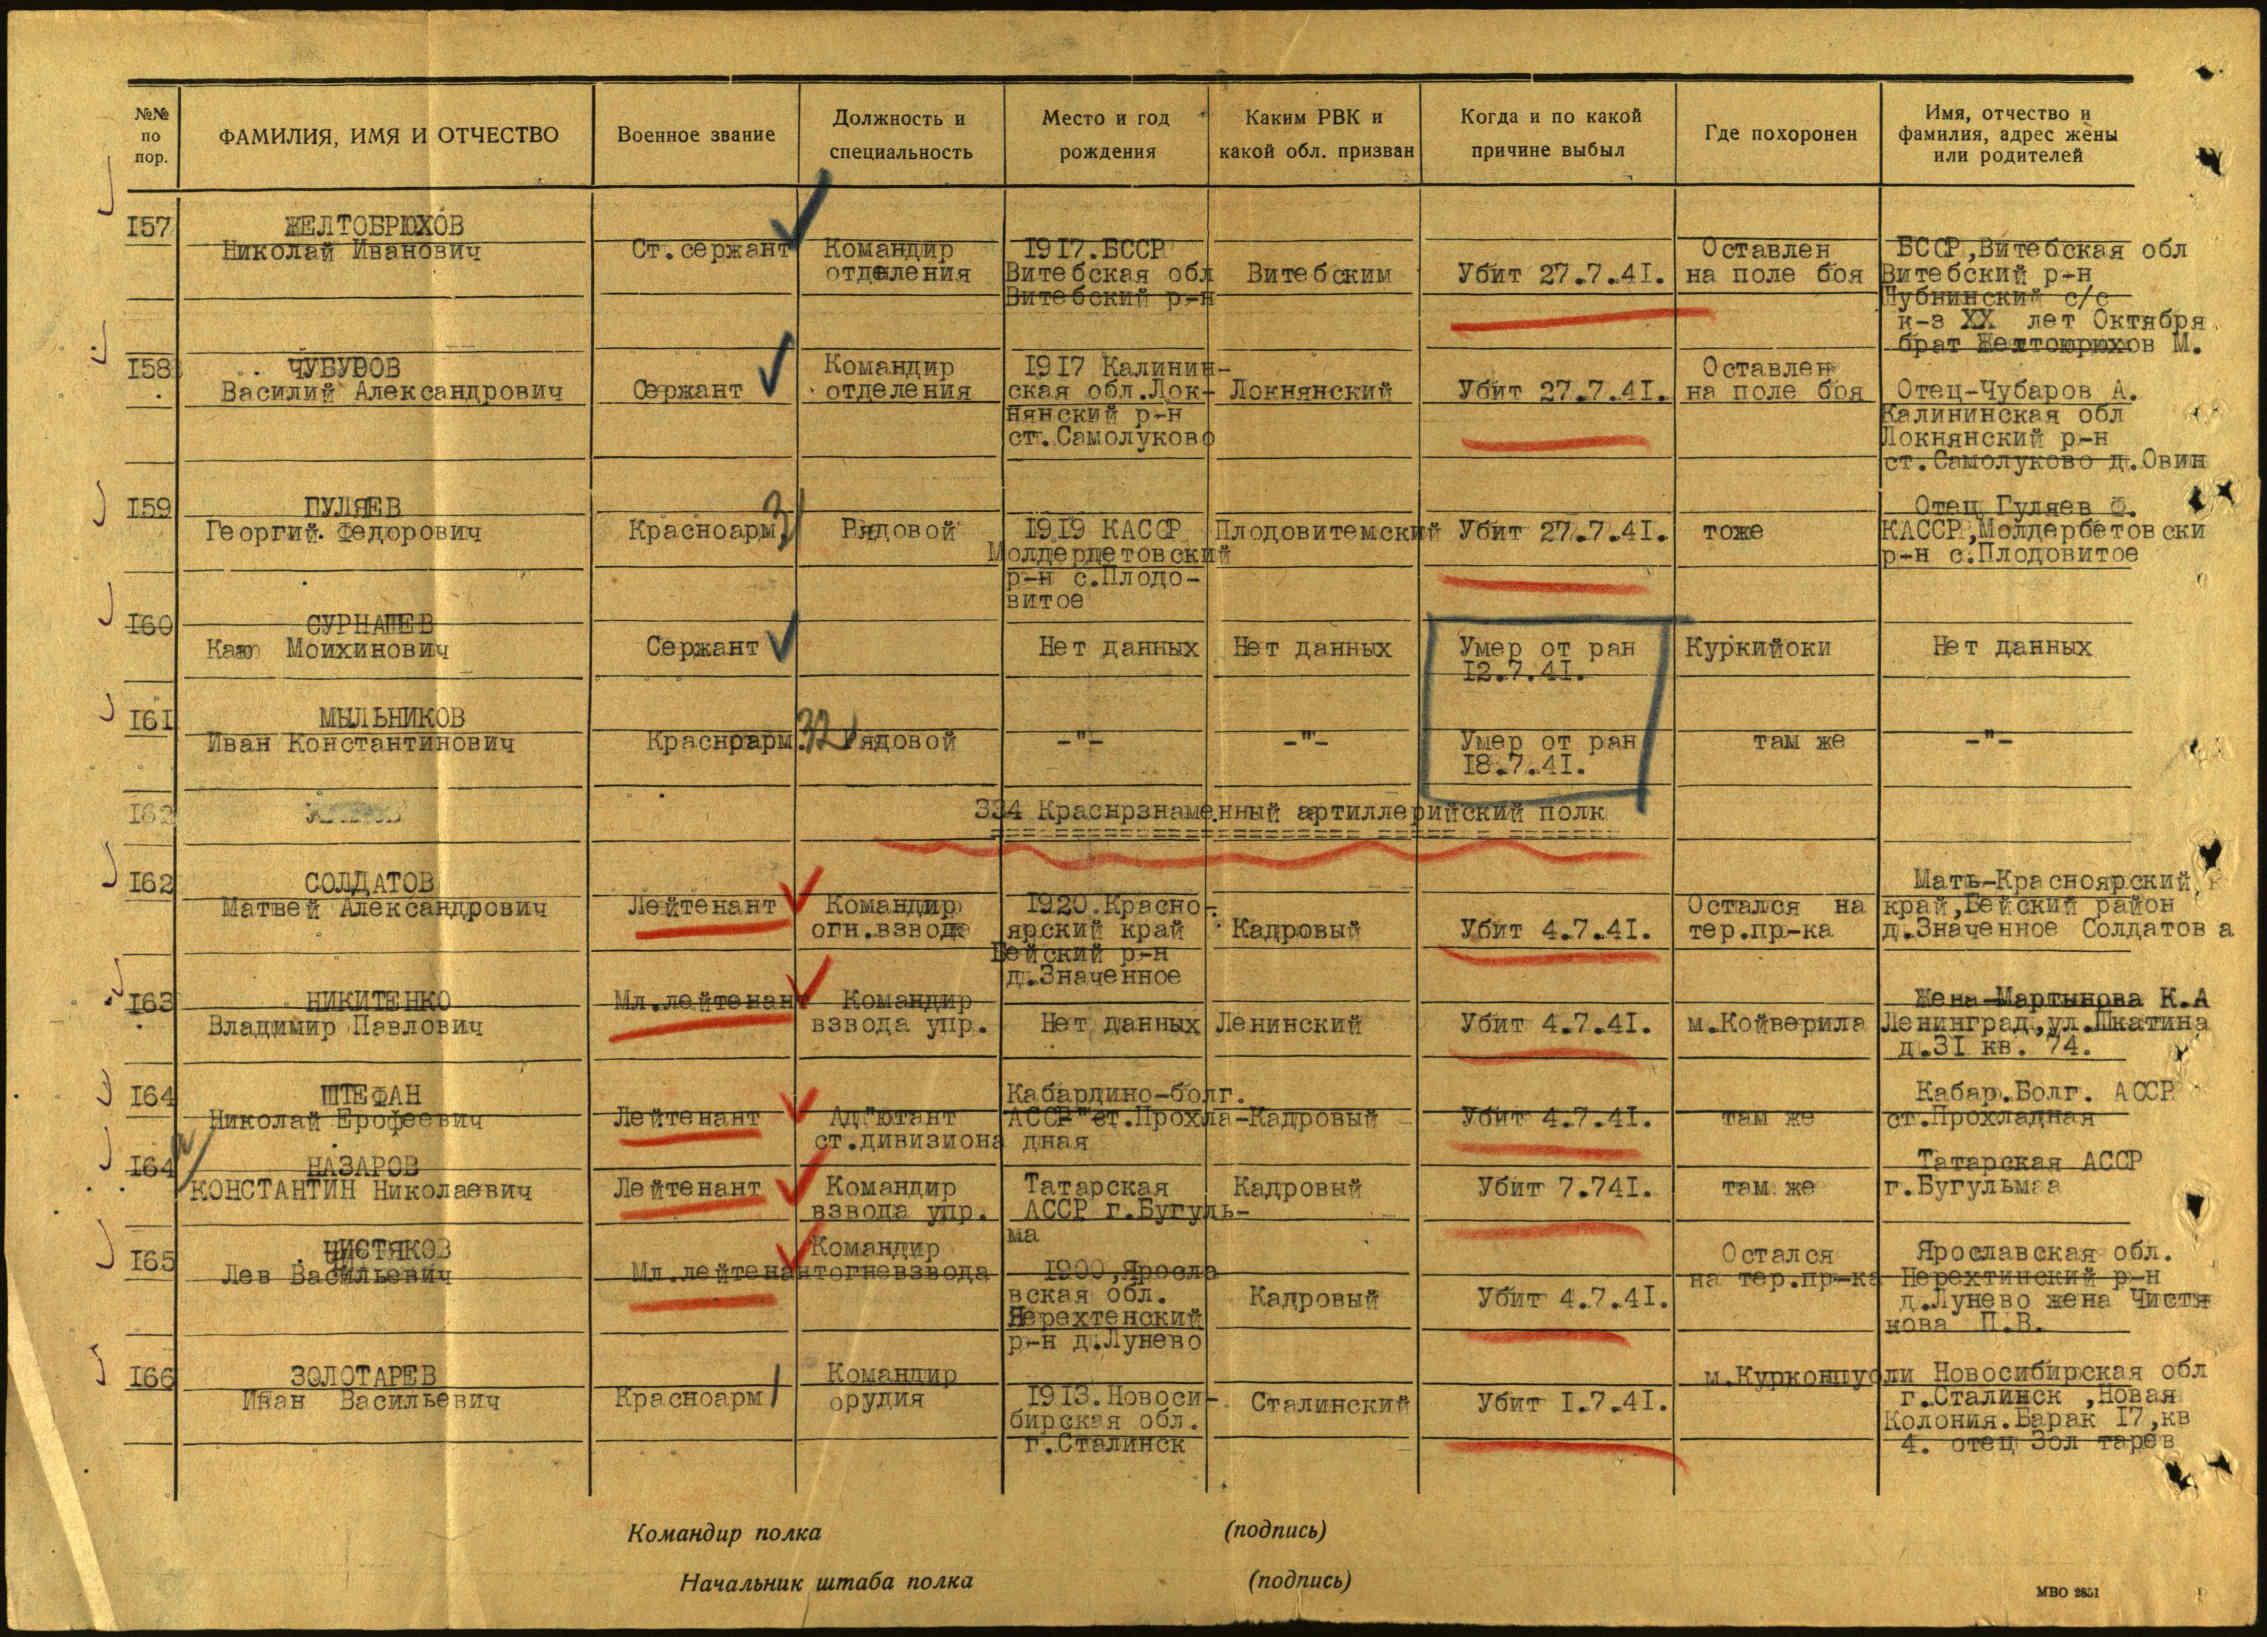 №№ по пор.
ФАМИЛИЯ, ИМЯ И ОТЧЕСТВО
Военное звание
Должность и специальность
Место и год рождения
Каким РВК и какой обл. призван
Когда и по какой причине выбыл
Где похоронен
Имя, отчество и фамилия, адрес жены или родителей
I57
ЖЕЛТОБРЮХОВ
Николай Иванович
Ст.сержант
Командир
отделения
I9I7.БССР
Витебская обл
Витебский р-н
Витебским
Убит 27.7.4I.
Оставлен
на поле боя
БССР,Витебская обл
Витебский р-н
с/с
к-з XX лет Октября
брат М.
I58
ЧУБУРОВ
Василий Александрович
Сержант
Командир
отделения
I9I7 Калинин-
ская обл.Лок-
нянский р-н
ст.Самолуково
Локнянский
Убит 27.7.4I.
Оставлен
на поле боя
Отец-Чубаров А.
Калининская обл
Локнянский р-н
ст.Самолуково д.Овин
I59
ГУЛЯЕВ
Георгий Федорович
Красноарм
Рядовой
I9I9 КАССР
Молдердетовский
р-н с.Плодо-
витое
Плодовитемский
Убит 27.7.4I.
тоже
Отец Гуляев Ф.
КАССР,Молдербетовски
р-н с.Плодовитое
I60
Моихинович
Сержант
Нет данных
Нет данных
Умер от ран
I2.7.4I.
Куркийоки
Нет данных
I6I
МЫЛЬНИКОВ
Иван Константинович
Красноарм.
Рядовой
-"-
-"-
Умер от ран
I8.7.4I.
там же
-"-
I62
334 Краснрзнаменный артиллерийский полк
I62
СОЛДАТОВ
Матвей Александрович
Лейтенант
Командир
огн.взвода
I920.Красно-
ярский край
Бейский р-н
д.Значенное
Кадровый
Убит 4.7.4I.
Остался на
тер.пр-ка
Мать-Красноярский
край,Бейский район
д.Значенное Солдатов а
I63
НИКИТЕНКО
Владимир Павлович
Мл.лейтенант
Командир
взвода упр.
Нет данных
Ленинский
Убит 4.7.4I.
м.Койверила
Жена-Мартынова К.А
Ленинград,ул.Шкатина
д.3I кв. 74.
I64
ШТЕФАН
Николай Ерофеевич
Лейтенант
Ад"ютант
ст.дивизиона
Кабардино-болг.
АССР ст.Прохла-
дная
Кадровый
Убит 4.7.4I.
там же
Кабар.Болг. АССР
ст.Прохладная
I64
НАЗАРОВ
КОНСТАНТИН Николаевич
Лейтенант
Командир
взвода упр.
Татарская
АССР г.Бугуль-
ма
Кадровый
Убит 7.74I.
там же
Татарская АССР
г.Бугульмаа
I65
ЧИСТЯКОВ
Лев Васильевич
Мл.лейтенант
Командир
огневзвода
I900,Яросла
вская обл.
Нерехтенский
р-н д.Лунево
Кадровый
Убит 4.7.4I.
Остался
на тер.пр-ка
Ярославская обл.
Нерехтинский р-н
д.Лунево жена Чистя
кова П.В.
I66
ЗОЛОТАРЕВ
Иван Васильевич
Красноарм
Командир
орудия
I9I3.Новоси-
бирская обл.
г.Сталинск
Сталинский
Убит I.7.4I.
Новосибирская обл
г.Сталинск ,Новая
Колония.Барак I7,кв
4. отец Зол тарев
Командир полка (подпись)
Начальник штаба полка (подпись)
МВО 2851